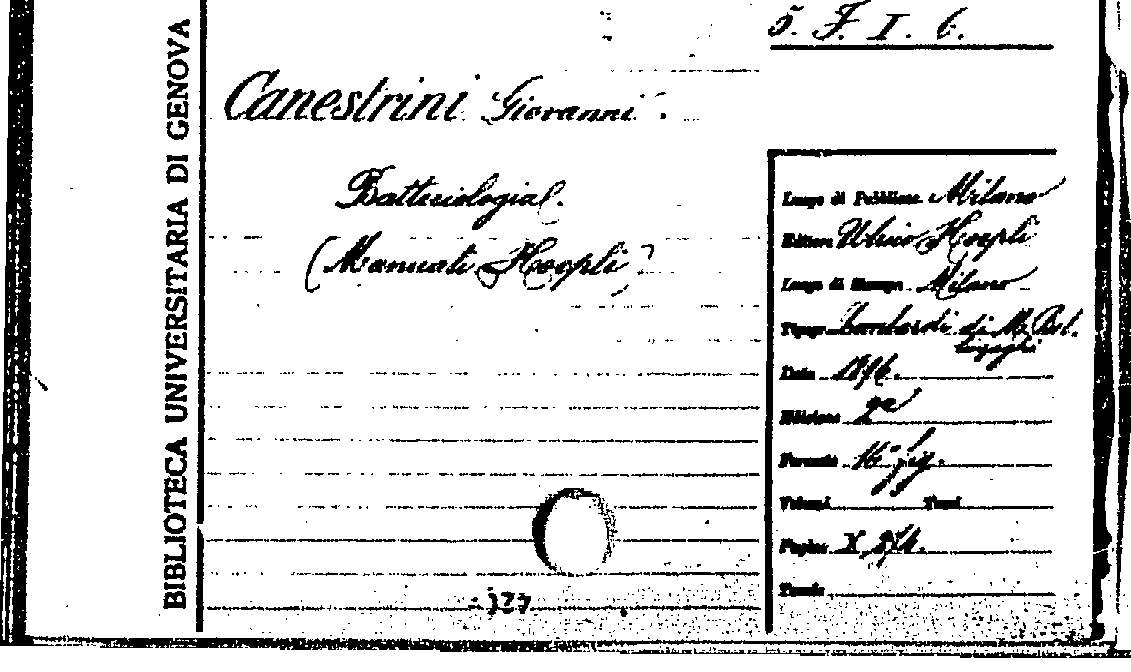 BIBLIOTECA UNIVERSITARIA DI GENOVA
5. F. I. 6.
Canestrini Giovanni.
Batteriologia.
(Manuali Hoepli)
Luogo di Pubblicaz. Milano
Editore Ulrico Hoepli
Luogo di Stampa Milano
Tipogr. Lombardi di M. Bel-
linzaghi
Data 1896.
Edizione 2a
Formato 16° fig.
Volumi Tomi
Pagine X
Tavole